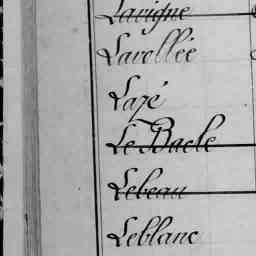 Lavigne
Lavollée
Lazé
Le Bacle
Lebeau
Leblanc